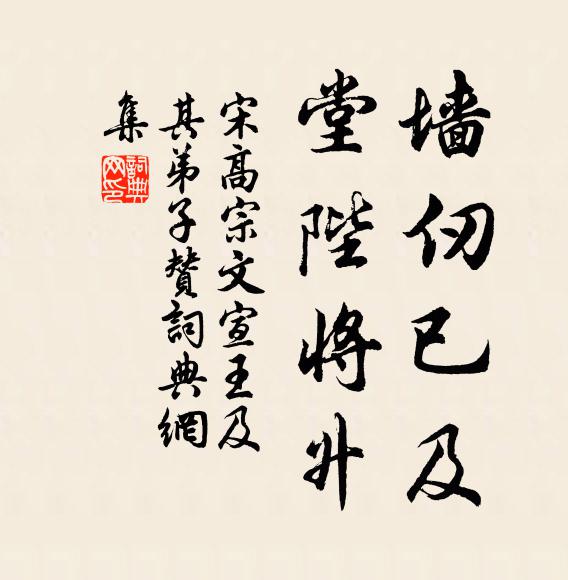 墙仞已及
堂陛将升
宋高宗文宣王及
其弟子赞詞典網
集
詞典網印